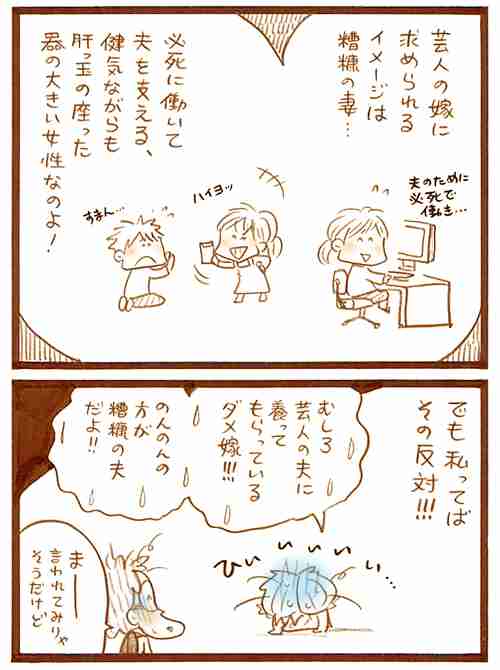 芸人の嫁に
求められる
イメージは
糟糠の妻…
必死に働いて
夫を支える、
健気ながらも
肝っ玉の座った
器の大きい女性なのよ!
夫のために
必死で
働き…
ハイヨッ
すまん…
でも私ってば
その反対!!!
むしろ
芸人の夫に
養って
もらっている
ダメ嫁!!!
のんのんの
方が
糟糠の夫
だよ!!
ひぃぃぃぃぃ…
まー
言われてみりゃ
そうだけど